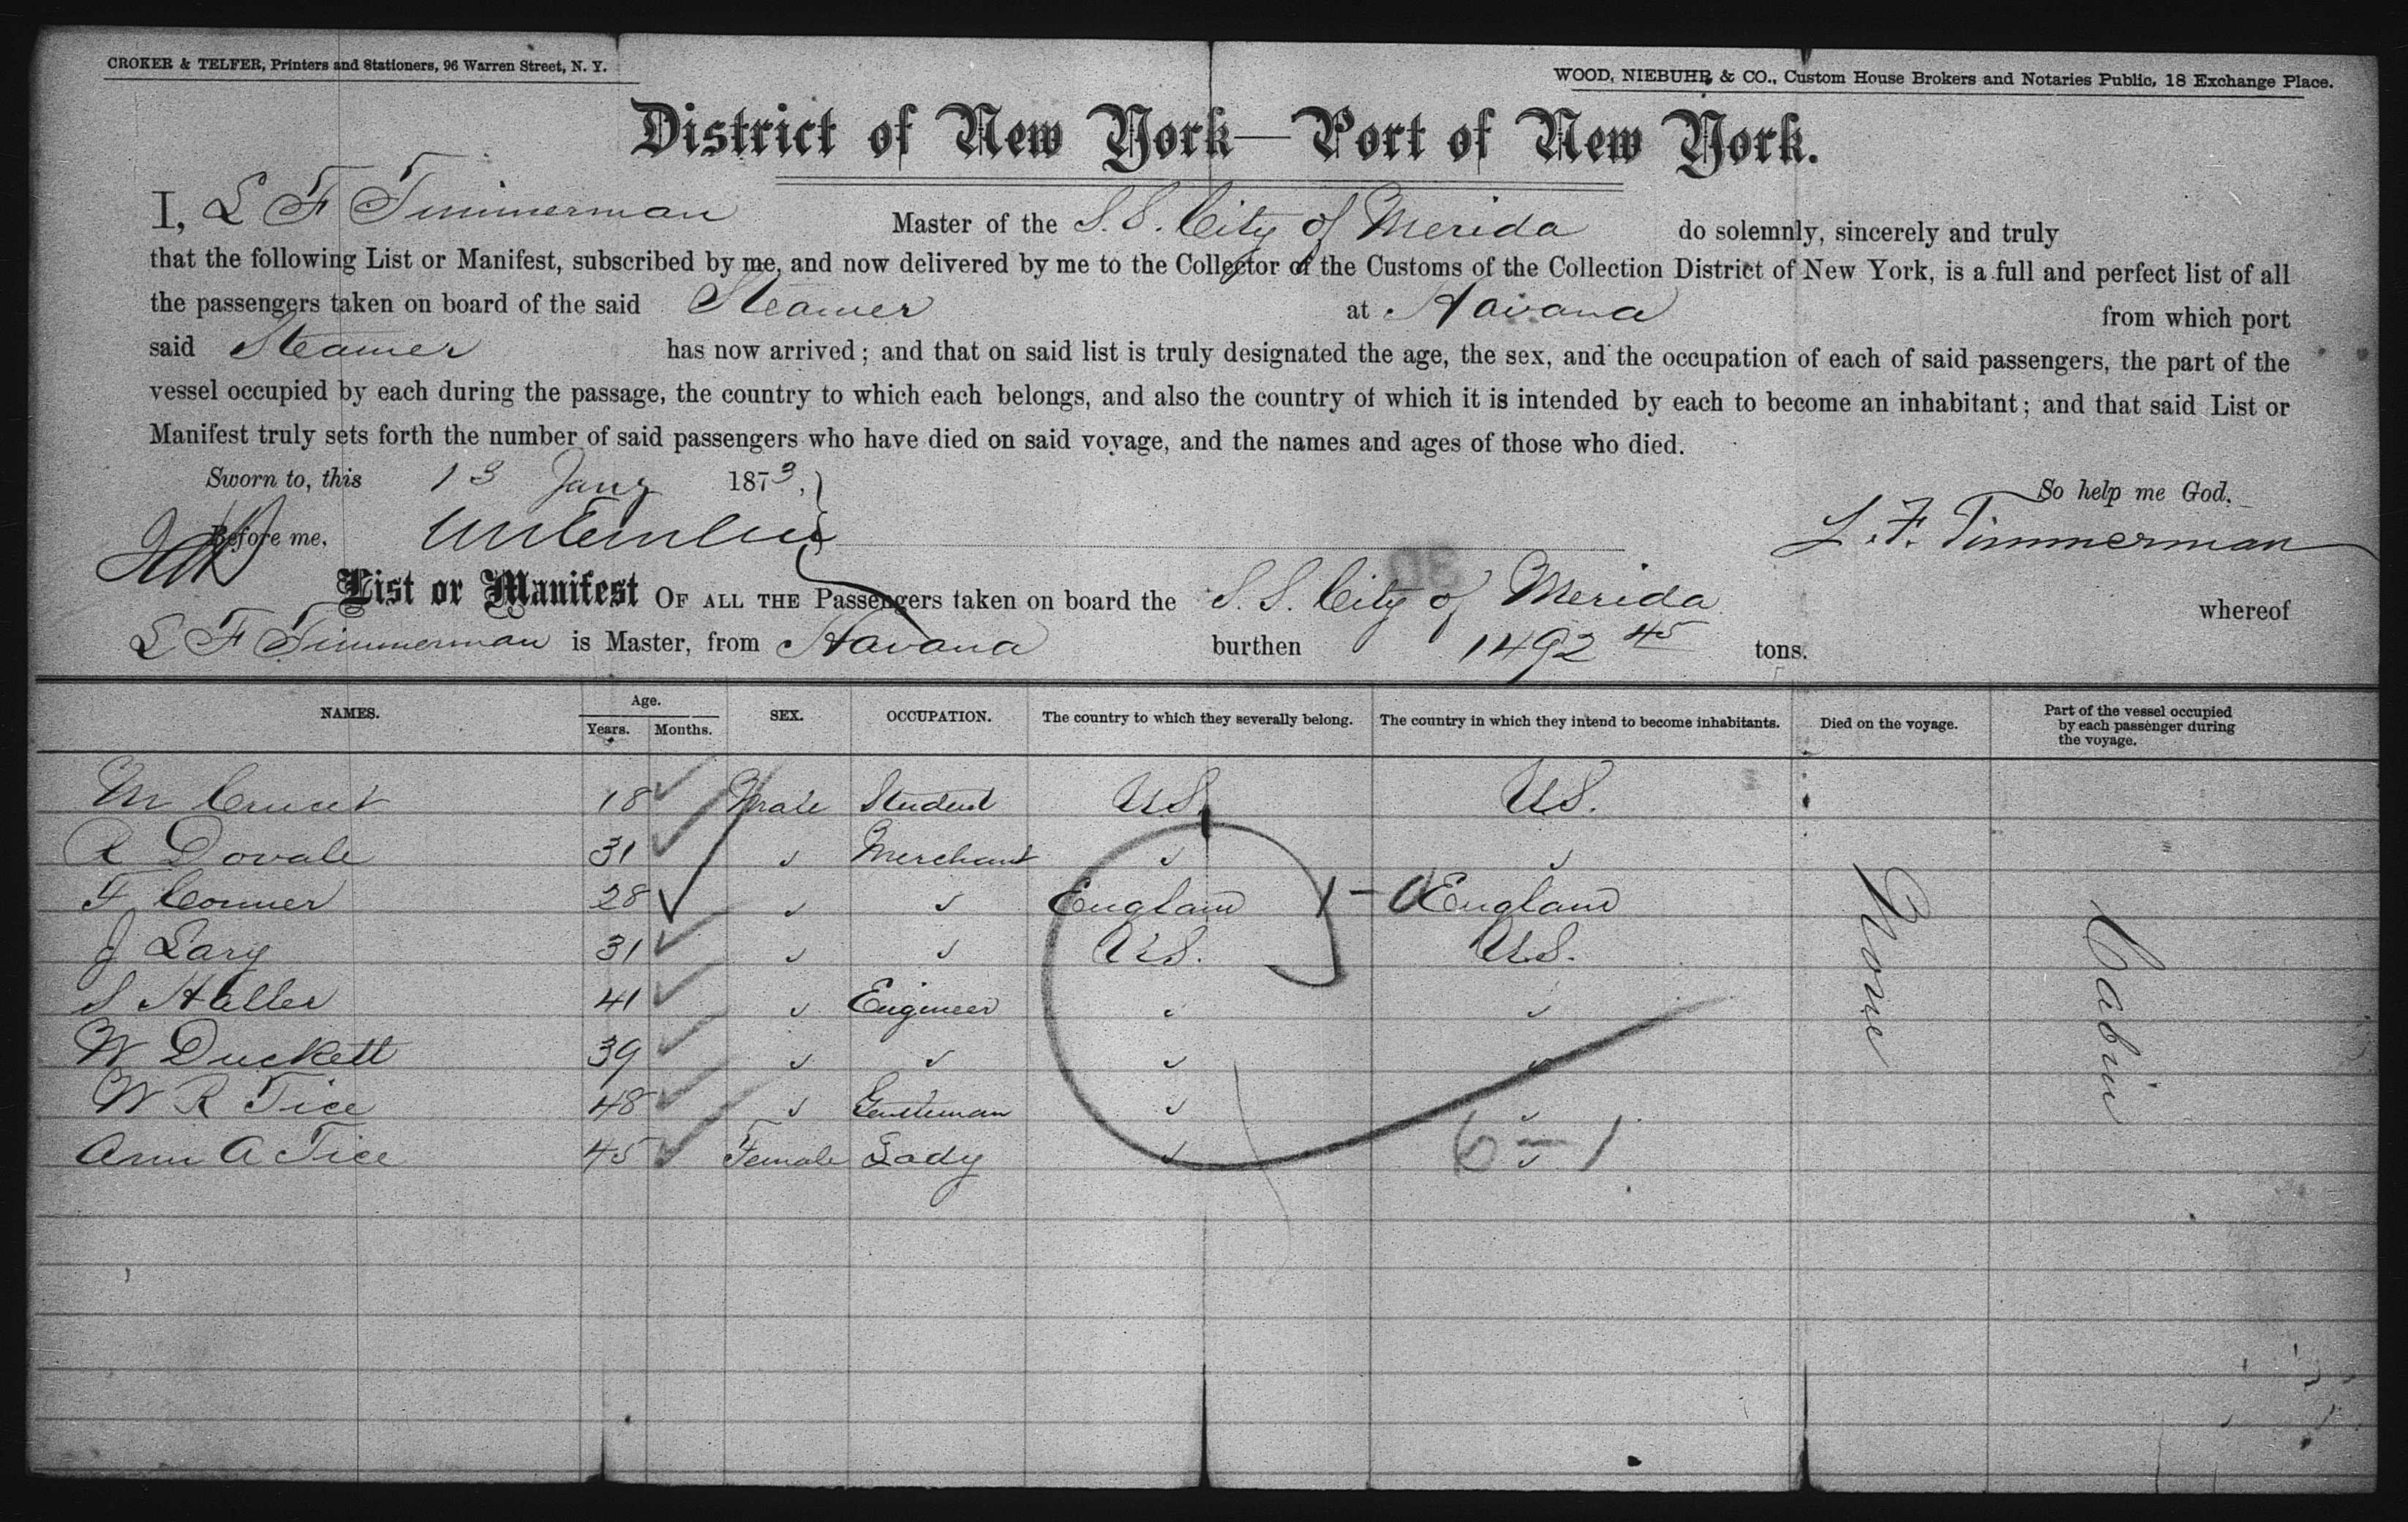 CROKER & TELFER, Printers and Stationers, 96 Warren Street, N. Y.
WOOD, NIEBUHR & CO., Custom House Brokers and Notaries Public, 18 Exchange Place.
District of New York—Port of New York.
I, L F Timmerman Master of the S.S. City of Merida do solemnly, sincerely and truly
that the following List or Manifest, subscribed by me, and now delivered by me to the Collector of the Customs of the Collection District of New York, is a full and perfect list of all
the passengers taken on board of the said Steamer at Havana from which port
said Steamer has now arrived; and that on said list is truly designated the age, the sex, and the occupation of each of said passengers, the part of the
vessel occupied by each during the passage, the country to which each belongs, and also the country of which it is intended by each to become an inhabitant; and that said List or
Manifest truly sets forth the number of said passengers who have died on said voyage, and the names and ages of those who died.
Sworn to, this 13 Jany 1873,
So help me God.
Before me,
L. F. Timmerman
List or Manifest OF ALL THE Passengers taken on board the S. S. City of Merida whereof
L F Timmerman is Master, from Havana burthen 1492 45 tons.
NAMES. Age. Years. Months. SEX. OCCUPATION. The country to which they severally belong. The country in which they intend to become inhabitants. Died on the voyage. Part of the vessel occupied by each passenger during the voyage.
M 18 Male Student U.S. U.S.
R Dovale 31 Merchant
F Conner 28 England 1-0 England
J Lary 31 U.S. U.S.
S Haller 41 Engineer
W Duckett 39
W R Tice 48 Gentleman
Ann A Tice 45 Female Lady
6-1
None
Cabin